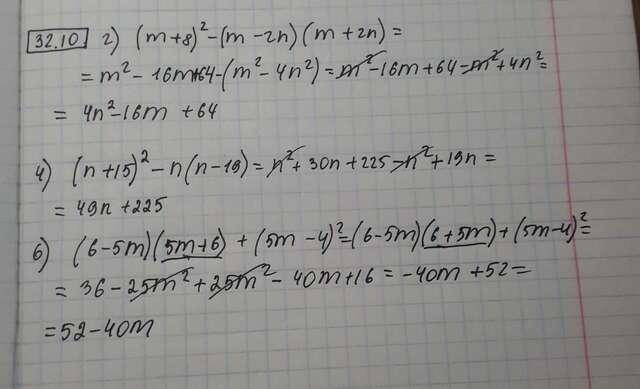 32.10 2) (m+8)² -(m -2n)(m + 2n) =
= m² - 16m+64-(m² - 4n²) = m² -16m +64 -m² +4n² =
= 4n² -16m + 64
4) (n +15)² - n(n -19) = n² + 30n +225 -n² +19n =
= 49n +225
6) (6-5m)(5m+6) + (5m -4)² =(6-5m)(6+5m)+(5m-4)² =
= 36 - 25m² + 25m² - 40m+16 = -40m +52 =
= 52 -40m